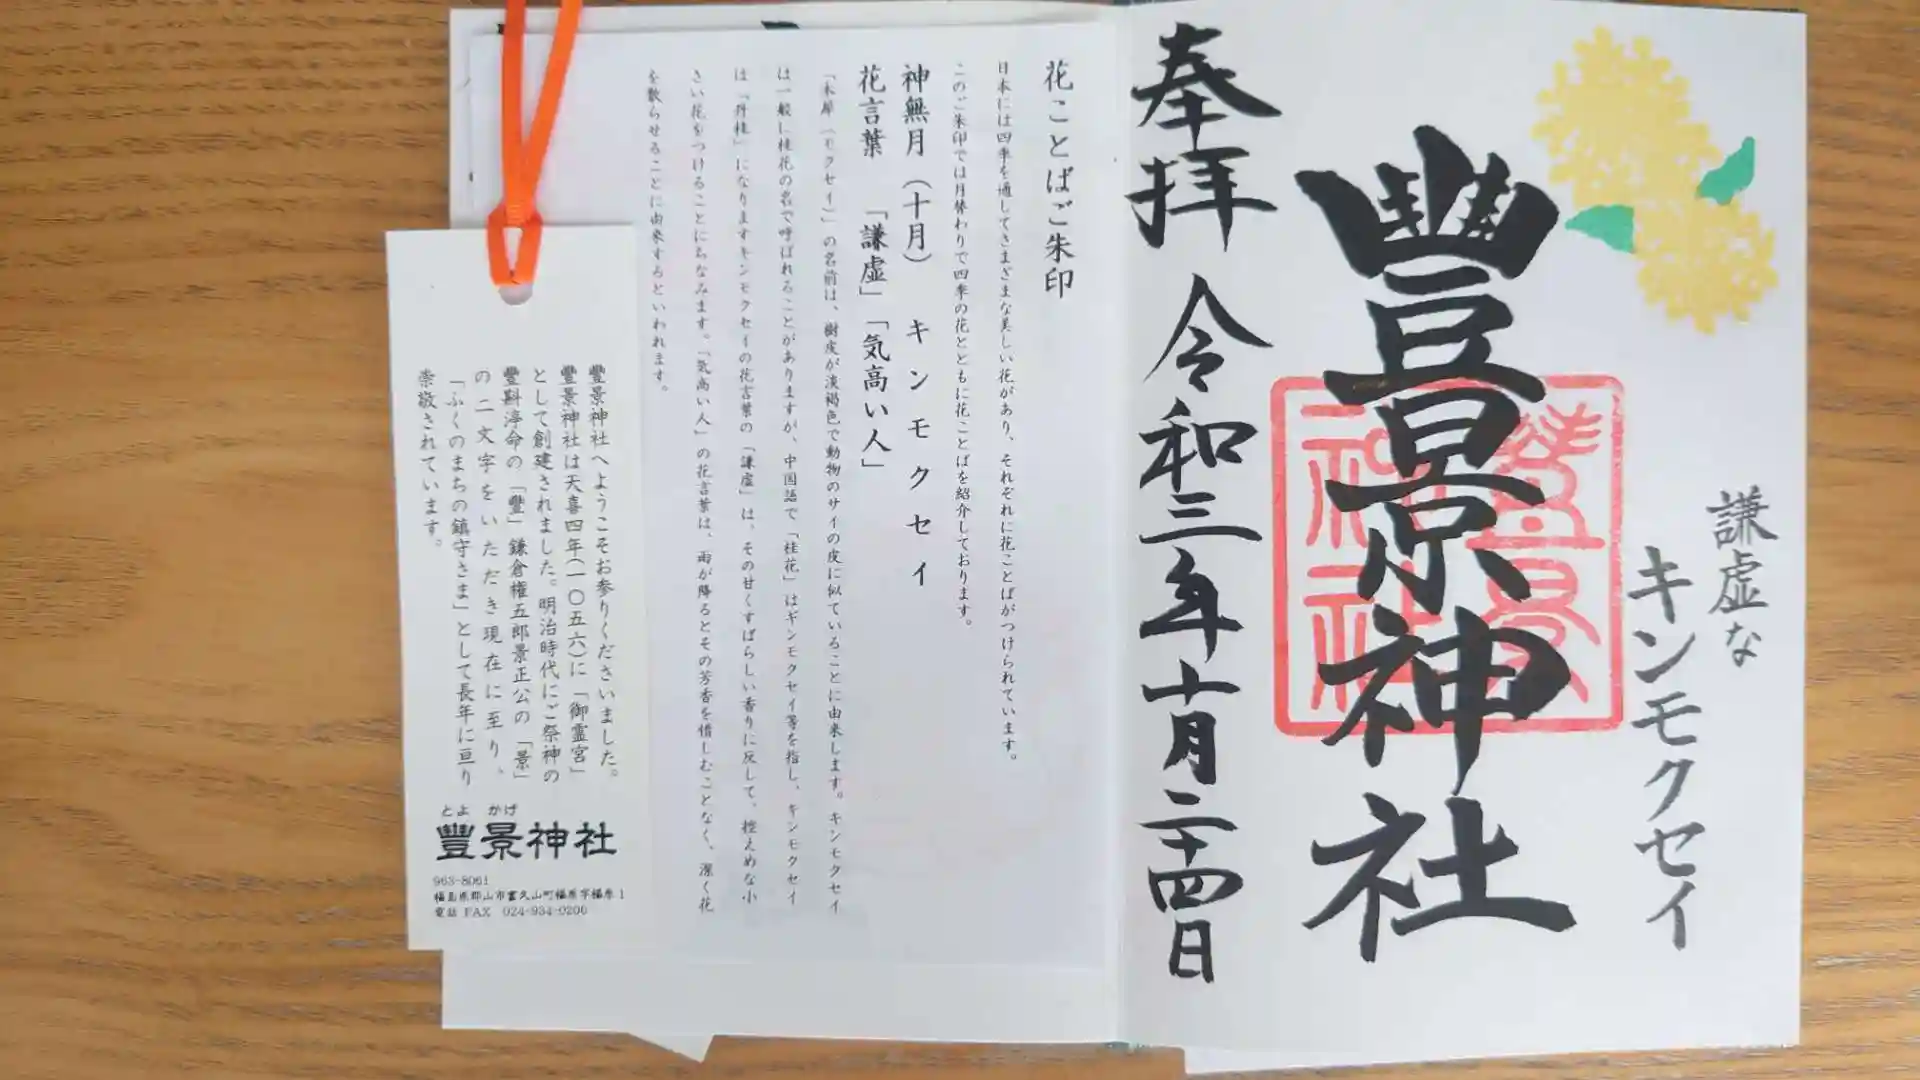 謙虚な
キンモクセイ
豐景神社
奉拝 令和三年十月二十四日
豐景神社
花ことばご朱印
日本には四季を通してさまざまな美しい花があり、それぞれに花ことばがつけられています。
このご朱印では月替わりで四季の花とともに花ことばを紹介しております。
神無月(十月) キンモクセイ
花言葉 「謙虚」「気高い人」
「木犀(モクセイ)」の名前は、樹皮が淡褐色で動物のサイの皮に似ていることに由来します。キンモクセイ
は一般に桂花の名で呼ばれることがありますが、中国語で「桂花」はギンモクセイ等を指し、キンモクセイ
は「丹桂」になりますキンモクセイの花言葉の「謙虚」は、その甘くすばらしい香りに反して、控えめな小
さい花をつけることにちなみます。「気高い人」の花言葉は、雨が降るとその芳香を惜しむことなく、潔く花
を散らせることに由来するといわれます。
豐景神社へようこそお参りくださいました。
豐景神社は天喜四年(一〇五六)に「御霊宮」
として創建されました。明治時代にご祭神の
豐斟渟命の「豐」鎌倉権五郎景正公の「景」
の二文字をいただき現在に至り、
「ふくのまちの鎮守さま」として長年に亘り
崇敬されています。
とよ かげ
豐景神社
963-8061
福島県郡山市富久山町福原字福原1
電話 FAX 024-934-0206